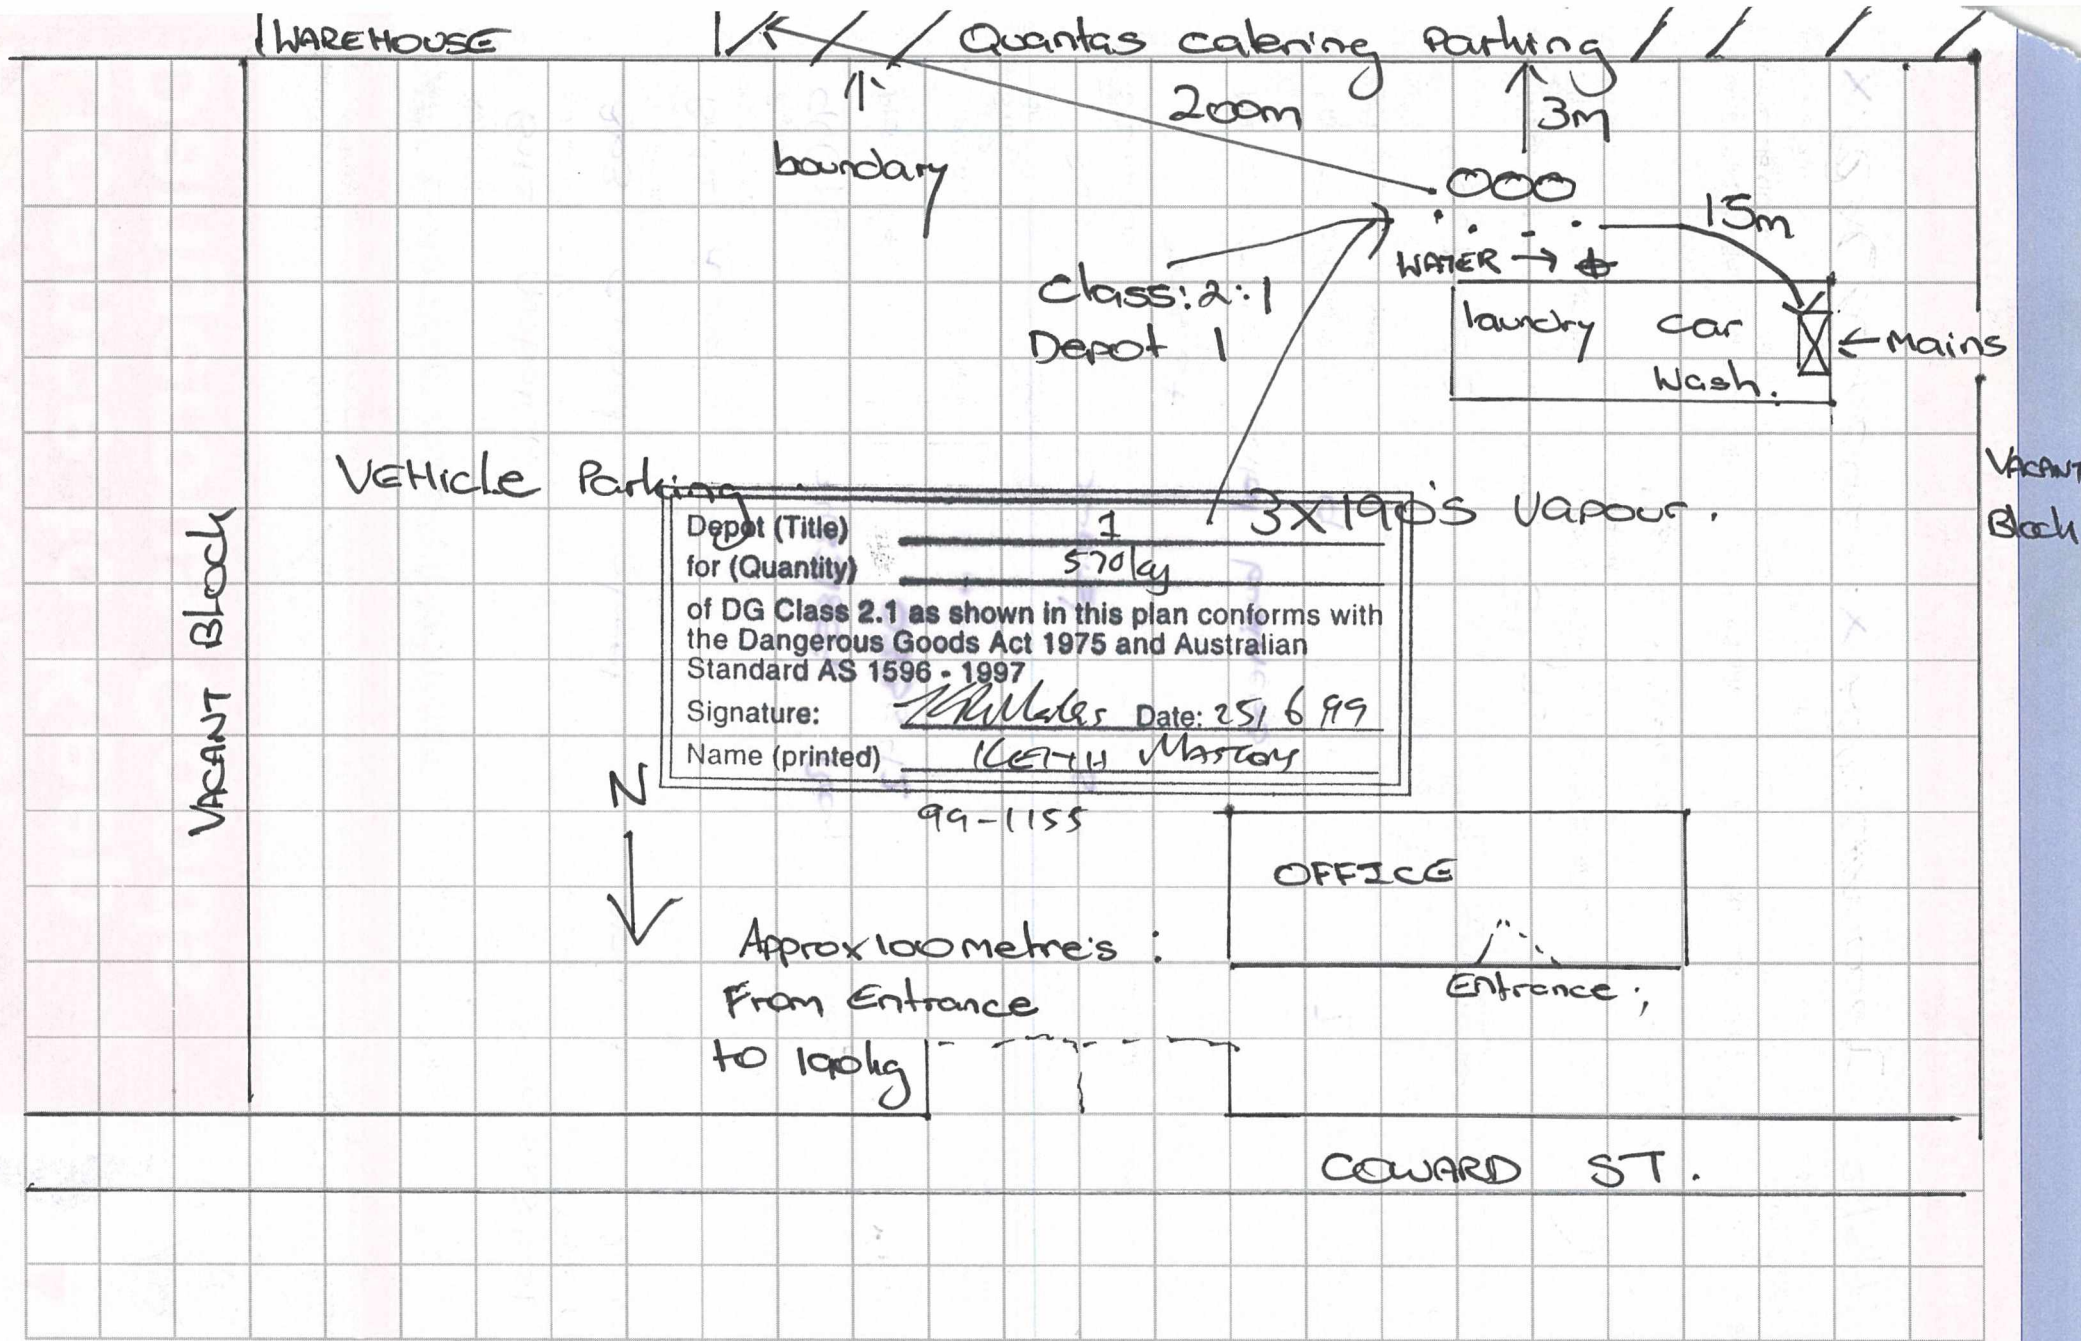 WAREHOUSE
Quantas catering Parking
200m
3m
boundary
15m
WATER →
Class: 2:1
Depot 1
laundry
car
wash.
← Mains
VEHicle Parking
3x190's Vapour.
VACANT
Block
VACANT Block
Depot (Title) 1
for (Quantity) 570kg
of DG Class 2.1 as shown in this plan conforms with
the Dangerous Goods Act 1975 and Australian
Standard AS 1596 - 1997
Signature: Date: 25/6/99
Name (printed) KEITH
99-1155
N
OFFICE
Entrance
Approx 100 metre's :
From Entrance
to 190kg
COWARD ST.